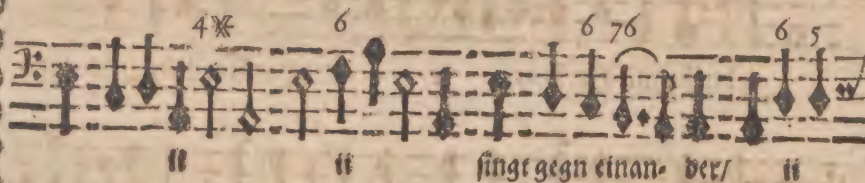 4※ 6 6 76 6 5
ii ii singt gegn einan- der/ ii